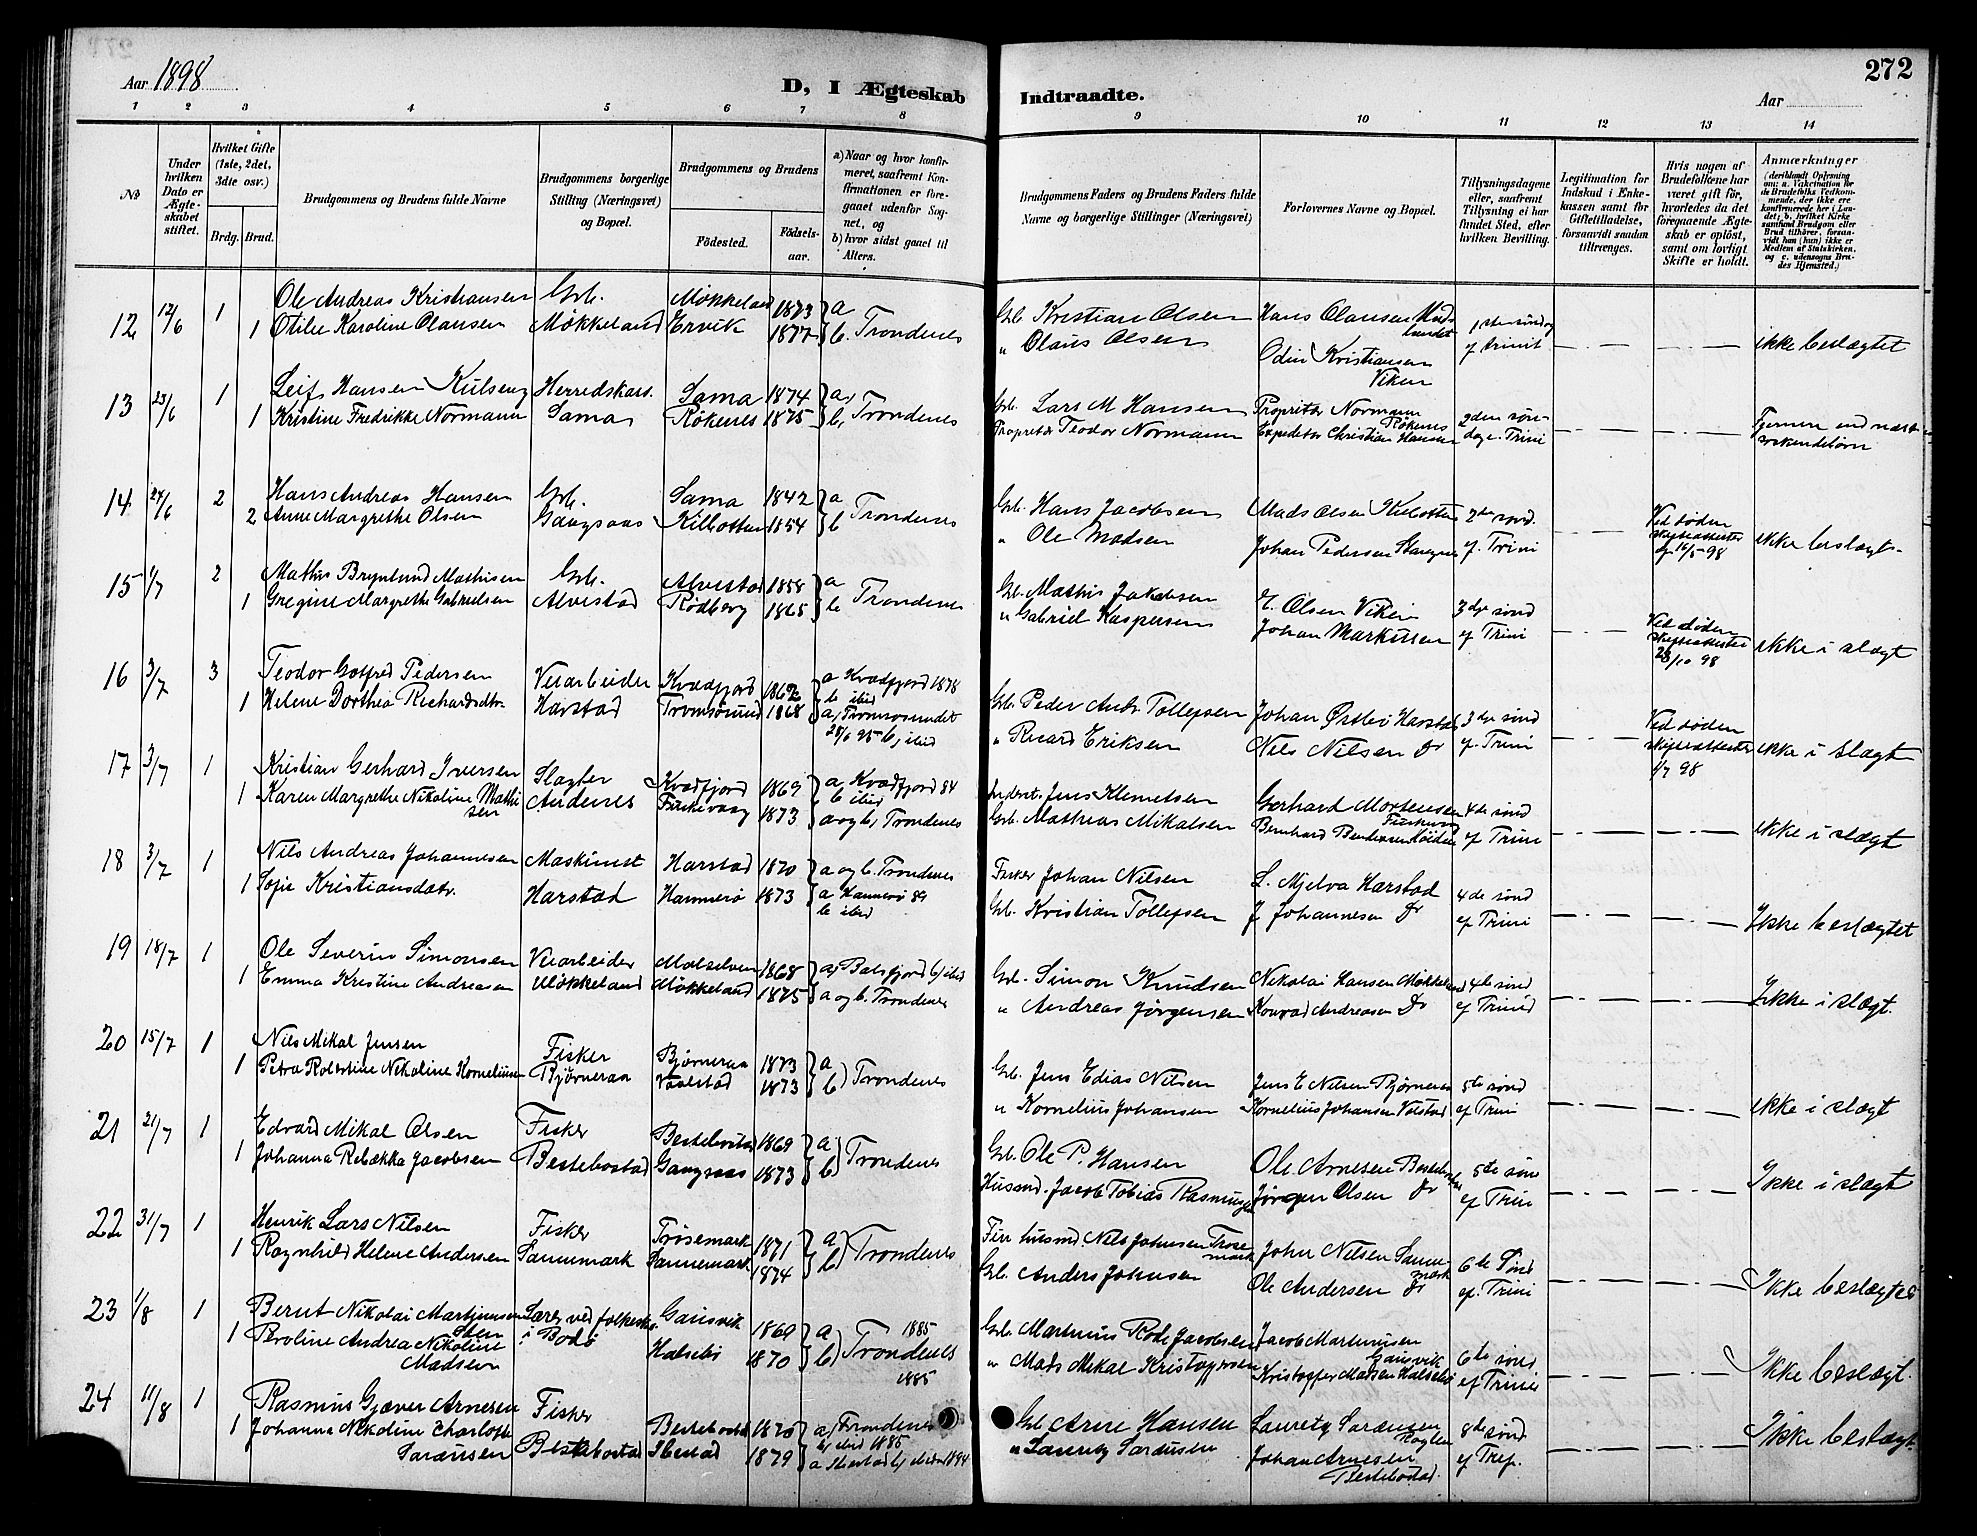 Aar 1898
D, I Ægteskab Indtraadte.
272
Aar
1 2 3 4 5 6 7 8 9 10 11 12 13 14
No
Under hvilken Dato er Ægteskabet stiftet.
Hvilket Gifte (1ste, 2det, 3die osv.)
Brdg. Brud.
Brudgommens og Brudens fulde Navne
Brudgommens borgerlige Stilling (Næringsvei) og Bopæl.
Brudgommens og Brudens
Födested. Födselsaar.
a) Naar og hvor konfirmeret, saafremt Konfirmationen er foregaaet udenfor Sognet, og
b) hvor sidst gaaet til Alters.
Brudgommens Faders og Brudens Faders fulde Navne og borgerlige Stillinger (Næringsvei)
Forlovernes Navne og Bopæl.
Tillysningsdagene eller, saafremt Tillysning ei har fundet Sted, efter hvilken Bevilling.
Legitimation for Indskud i Enkekassen samt for Giftetilladelse, forsaavidt saadan tiltrænges.
Hvis nogen af Brudefolkene har været gift för, hvorledes da det foregaaende Ægteskab er oplöst, samt om lovligt Skifte er holdt.
Anmærkninger (deriblandt Oplysning om: a. Vakcination for de Brudefolks Vedkommende, der ikke ere konfirmerede her i Landet; b. hvilket Kirkesamfund Brudgom eller Brud tilhörer, forsaavidt han (hun) ikke er Medlem af Statskirken, og c. udensogns Brudes Hjemsted.)
12 12/6 1 Ole Andreas Kristiansen Grb. Møkkeland 1873 a
1 Otilie Karoline Olausen Møkkeland Ervik 1877 b. Trondenes
Grb. Kristian Olsen Hans Olausen 1ste sønd
" Olaus Olsen Odin Kristiansen Viken ef trinit ikke beslægtet
13 23/6 1 Leif Hansen Kulseng Herredskass. Sama 1874 a,
1 Kristine Fredrikke Normann Sama Røkenes 1875 b, Trondenes
Grb. Lars M Hansen Proprietær Normann Røkenes 2den søn-
Proprietær Teodor Normann Expeditør Christian Hansen dag e. Trini Fjernere end næstsøskendebørn
14 24/6 2 Hans Andreas Hansen Grb. Sama 1842 a
2 Anne Margrethe Olsen Gangsaas Kilbotten 1854 b Trondenes
Grb. Hans Jacobsen Mads Olsen Kilbotten 2den sønd.
" Ole Madsen Johan Pedersen ef. Trini Ved døden skifteattester 16/5 98 ikke beslægt.
15 1/7 2 Mathis Brynlund Mathisen Grb. Alvestad 1858 a
1 Gregine Margrethe Gabrielsen Alvestad Rødberg 1865 b Trondenes
Grb. Mathis Jakobsen E. Olsen Viken 3dje sønd
" Gabriel Kaspersen Johan Markussen ef Trini Ved døden skifteattester 98 ikke i slægt
16 3/7 3 Teodor Gotfred Pedersen Veiarbeider Kvædfjord 1862 a Kvædfjord 1878 b ibid
1 Helene Dorthea Richardsdtr. Harstad Tromsøsund 1868 a, Tromsøsundet 95 b, ibid
Grb. Peder Andr. Tollefsen Johan Østbø Harstad 3dje sønd
" Rikard Eriksen Nils Nilsen Do ef. Trini Ved døden skifteattester 1/7 98 ikke i slægt
17 3/7 1 Kristian Gerhard Iversen Slagter Kvædfjord 1869 a, Kvædfjord 84 b ibid
1 Karen Margrethe Nikoline Mathisen Andenes Finkevaag 1873 a og b, Trondenes
Jens Klemetsen Gerhard Mortensen 4de sønd
Grb. Mathias Mikalsen Bernhard ef Trini ikke i slægt
18 3/7 1 Nils Andreas Johannesen Maskinist Harstad 1870 a og b. Trondenes
1 Sofie Kristiansdatr. Harstad Hammerø 1873 a Hammerø 89 b ibid
Fisker Johan Nilsen L. Mjelva Harstad 4de sønd
Grb. Kristian Tollefsen J Johannesen Do ef Trini Ikke beslægtet
19 18/7 1 Ole Severin Simonsen Veiarbeider Maalselven 1868 a, Balsfjord b, ibid
1 Emma Kristine Andreasen Møkkeland Møkkeland 1875 a og b. Trondenes
Grb. Simon Knudsen Nikolai Hansen Møkkeland 4de sønd
" Andreas Jørgensen Konrad Andreasen Do ef Trinid Ikke i slægt.
20 15/7 1 Nils Mikal Jensen Fisker Bjørneraa 1873 a
1 Petra Robertine Nikoline Korneliusen Bjørneraa Volstad 1873 b) Trondenes
Grb. Jens Edias Nilsen Jens E Nilsen Bjørneraa 5te sønd
" Kornelius Johansen Kornelius Johansen Volstad ef Trini ikke i slægt
21 21/7 1 Edvard Mikal Olsen Fisker Bestebostad 1869 a
1 Johanna Rebækka Jacobsen Bestebostad Gangsaas 1873 b) Trondenes
Grb. Ole P. Hansen Ole Arnesen Bestebostad 5te sønd
Husmd. Jacob Tobias Rasmussen Jørgen Olsen Do ef Trini Ikke i slægt
22 31/7 1 Henrik Lars Nilsen Fisker Trøsemark 1871 a
1 Ragnhild Helene Andersen Sannemark Sannemark 1874 b) Trondenes
husmd. Nils Johnsen Trøsemark John Nilsen Sannemark 6te Sønd
Grb. Anders Johnsen Ole Andersen Do ef. Trini Ikke beslægtet
23 1/8 1 Bernt Nikolai Martinussen Lærer ved folkeskolen i Bodø Gausvik 1869 a, 1885
1 Peroline Andrea Nikoline Madsen Halsebø 1870 b) Trondenes 1885
Grb. Martinus Rode Jacobsen Jacob Martinusen Gausvik 6te sønd
" Mads Mikal Kristoffersen Kristoffer Madsen Halsebø ef Trini Ikke beslægt.
24 11/8 1 Rasmus Gjæver Arnesen Fisker Bestebostad 1870 a, Trondenes b, ibid 1885
1 Johanna Nikoline Charlotte Sarausen Bestebostad Ibestad 1879 a Ibestad b, ibidem 1894
Grb Arne Hansen Lauretz Sarausen Roglen 8de sønd
" Lauritz Sarausen Johan Arnesen Bestebostad. ef Tref. Ikke beslægt.